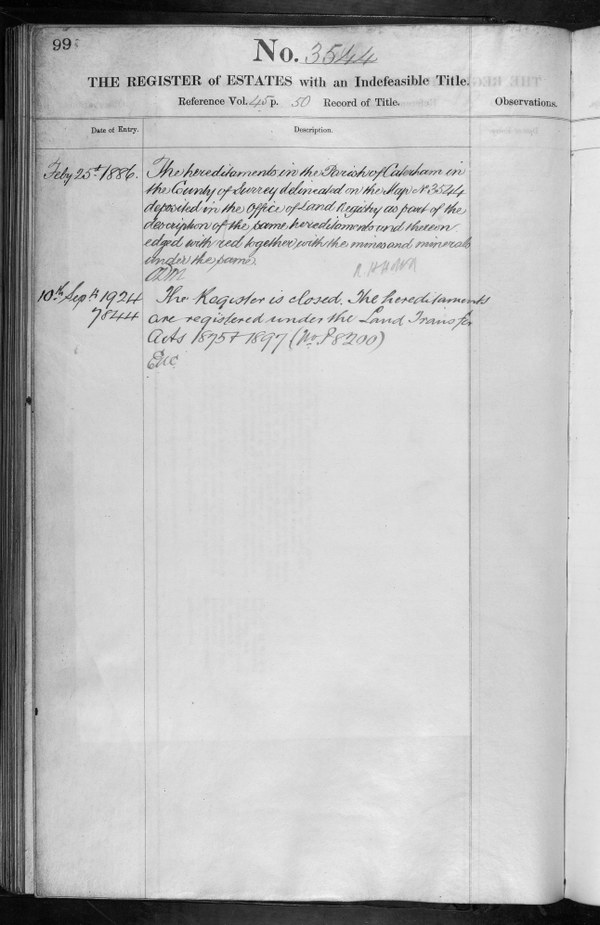 99
No. 3544
THE REGISTER of ESTATES with an Indefeasible Title.
Reference Vol. 45 p. 50 Record of Title.
Observations.
Date of Entry.
Description.
Feby 25th 1886.
The hereditaments in the Parish of Caterham in
the County of Surrey delineated on the Map No 3544
deposited in the Office of Land Registry as part of the
description of the same hereditaments and thereon
edged with red together with the mines and minerals
under the same.
10th Sept 1924
7844
The Register is closed. The hereditaments
are registered under the Land Transfer
Acts 1875 & 1897 (No. P8200)